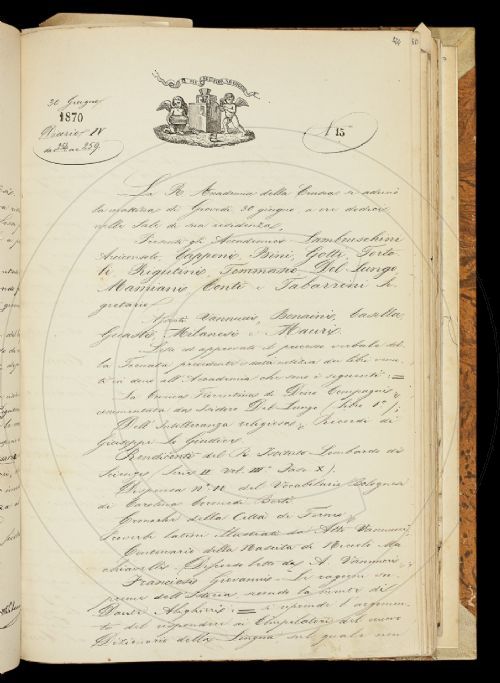 30 Giugno
1870
Diario IV
da 258 a 259.
N 15
La R. Accademia della Crusca si adunò
la mattina di Giovedì 30 giugno, a ore dodici
nelle Sale di sua residenza,
Presenti gli Accademici Lambruschini
Arciconsolo, Capponi, Bini, Gotti, Torto-
li, Rigutini, Tommaseo, Del Lungo,
Mamiani, Conti e Tabarrini Se-
gretario
Assenti Vannucci, Bonaini, Casella,
Guasti, Milanesi e Mauri.
Letto ed approvato il processo verbale del-
la Tornata precedente è data notizia dei libri venu-
ti in dono all'Accademia che sono i seguenti: =
La Cronica Fiorentina di Dino Compagni
commentata da Isidoro Del Lungo (Libro 1°);
Dell' Intolleranza religiosa, Ricordi di
Giuseppe Lo Giudice;
Rendiconti del R. Istituto Lombardo di
Scienze (Serie II Vol. III° Fasc. X);
Dispensa N° 12 del Vocabolario Bolognese
di Carolina Coronedi Berti
Cronache della Città di Fermo,
Proverbi latini illustrati da Atto Vannucci,
Centenario della Nascita di Niccolò Ma-
chiavelli - Discorso letto da A. Vannucci,
Francioso Giovanni - Le ragioni su-
preme dell' Istoria secondo la mente di
Dante Alighieri; = e riprende l' argomen-
to del rispondere ai Compilatori del nuovo
Dizionario della Lingua sul quale non